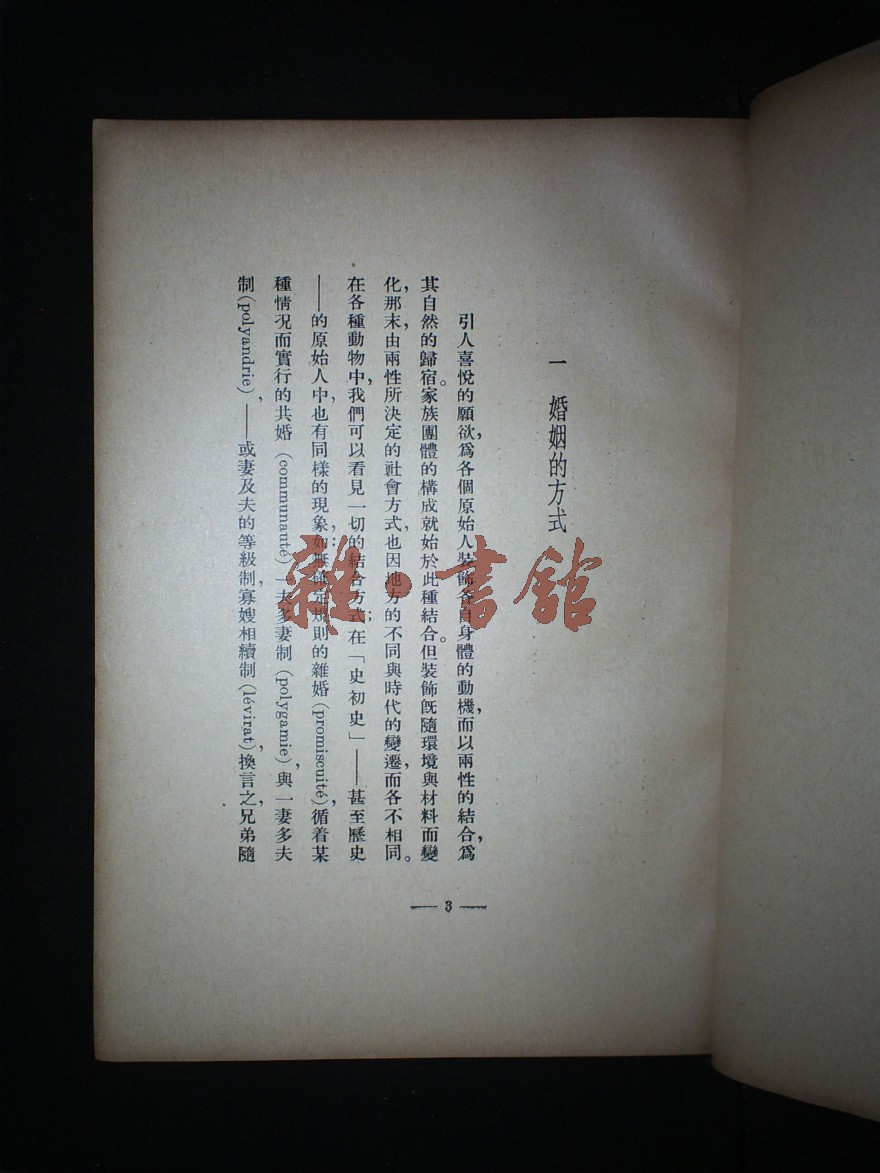 一　婚姻的方式
引人喜悅的願欲，爲各個原始人裝飾各自身體的動機，而以兩性的結合，爲
其自然的歸宿。家族團體的構成就始於此種結合。但裝飾旣隨環境與材料而變
化，那末，由兩性所決定的社會方式，也因地方的不同與時代的變遷，而各不相同。
在各種動物中，我們可以看見一切的結合方式；在「史初史」——甚至歷史
——的原始人中，也有同樣的現象，如：無確定規則的雜婚(promiscuité)，循着某
種情況而實行的共婚(communauté)一夫多妻制(polygamie)，與一妻多夫
制(polyandrie)，——或妻及夫的等級制，寡嫂相續制(lévirat)，換言之，兄弟隨
— 3 —
雜·書館